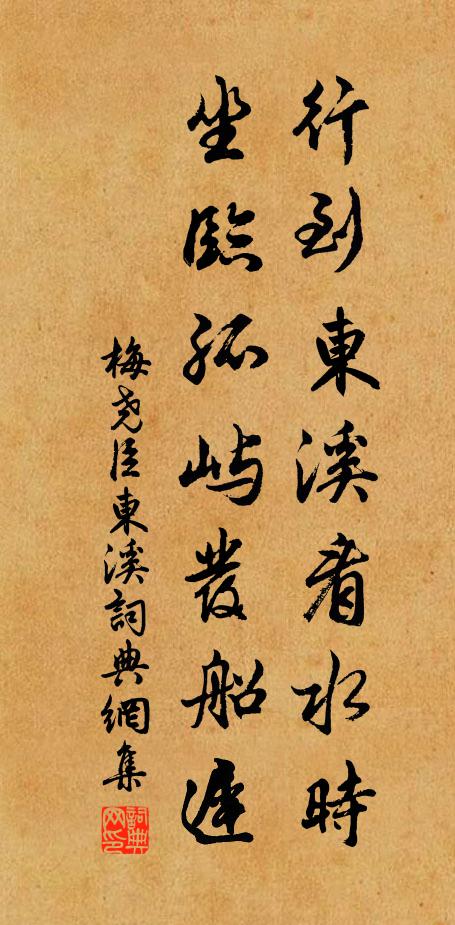 行到東溪看水時
坐臨孤嶼發船遲
梅堯臣東溪詞典網集
詞典
网印